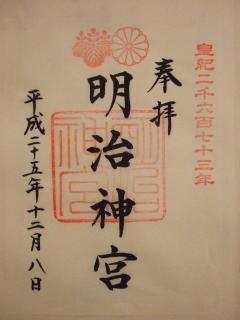 皇紀二千六百七十三年
奉拝
明治神宮
平成二十五年十二月八日